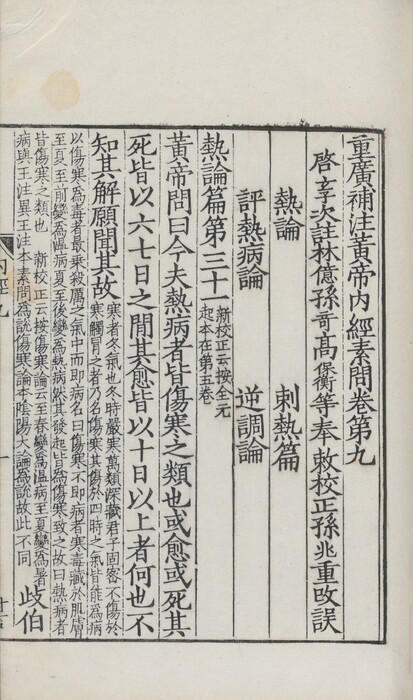 重廣補注黃帝內經素問卷第九
啓玄子次註林億孫奇高保衡等奉敕校正孫兆重改誤
熱論　刺熱篇
評熱病論　逆調論
熱論篇第三十一
新校正云按全元
起本在第五卷
黃帝問曰今夫熱病者皆傷寒之類也或愈或死其
死皆以六七日之間其愈皆以十日以上者何也不
知其解願聞其故
寒者冬氣也冬時嚴寒萬類深藏君子固密不傷於
寒觸冒之者乃名傷寒其傷於四時之氣皆能為病
以傷寒為毒者最乘殺厲之氣中而即病名曰傷寒不即病者寒毒藏於肌膚
至夏至前變為溫病夏至後變為熱病然其發起皆為傷寒致之故曰熱病者
皆傷寒之類也　新校正云按傷寒論云至春變為溫病至夏變為暑
病與王注異王注本素問為說傷寒論本陰陽大論為說故此不同
歧伯
內經九